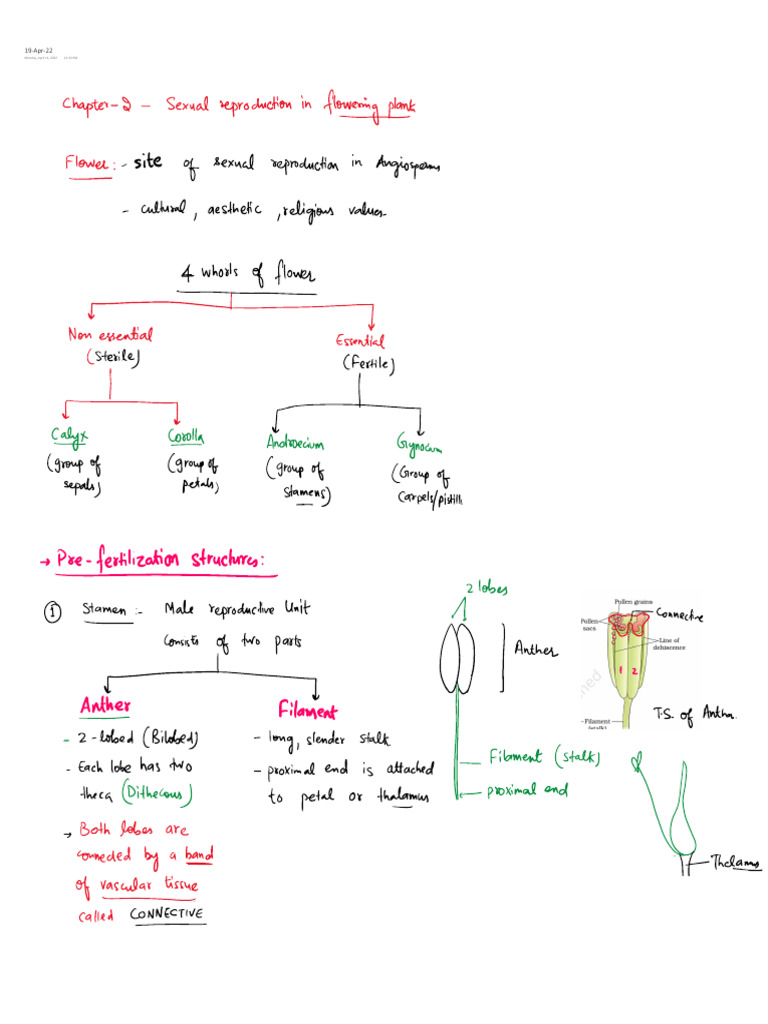 19-Apr-22
Chapter-2 - Sexual reproduction in flowering plant
Flower:- site of sexual reproduction in Angiosperms
- cultural, aesthetic, religious values
4 whorls of flower
Non essential
(Sterile)
Essential
(Fertile)
Calyx
(group of
sepals)
Corolla
(group of
petals)
Androecium
(group of
Stamens)
Gynocium
(Group of
Carpels/pistill
→ Pre-fertilization structures:
① Stamen :- Male reproductive Unit
Consists of two parts
Anther
- 2-lobed (Bilobed)
- Each lobe has two
theca (Dithecous)
→ Both lobes are
connected by a band
of vascular tissue
called CONNECTIVE
Filament
- long, slender stalk
- proximal end is attached
to petal or thalamus
2 lobes
Anther
Filament (stalk)
proximal end
Pollen grains
Connective
Pollen
sacs
Line of
dehiscence
1 2
Filament
(stalk)
T.S. of Anther
Thelamus